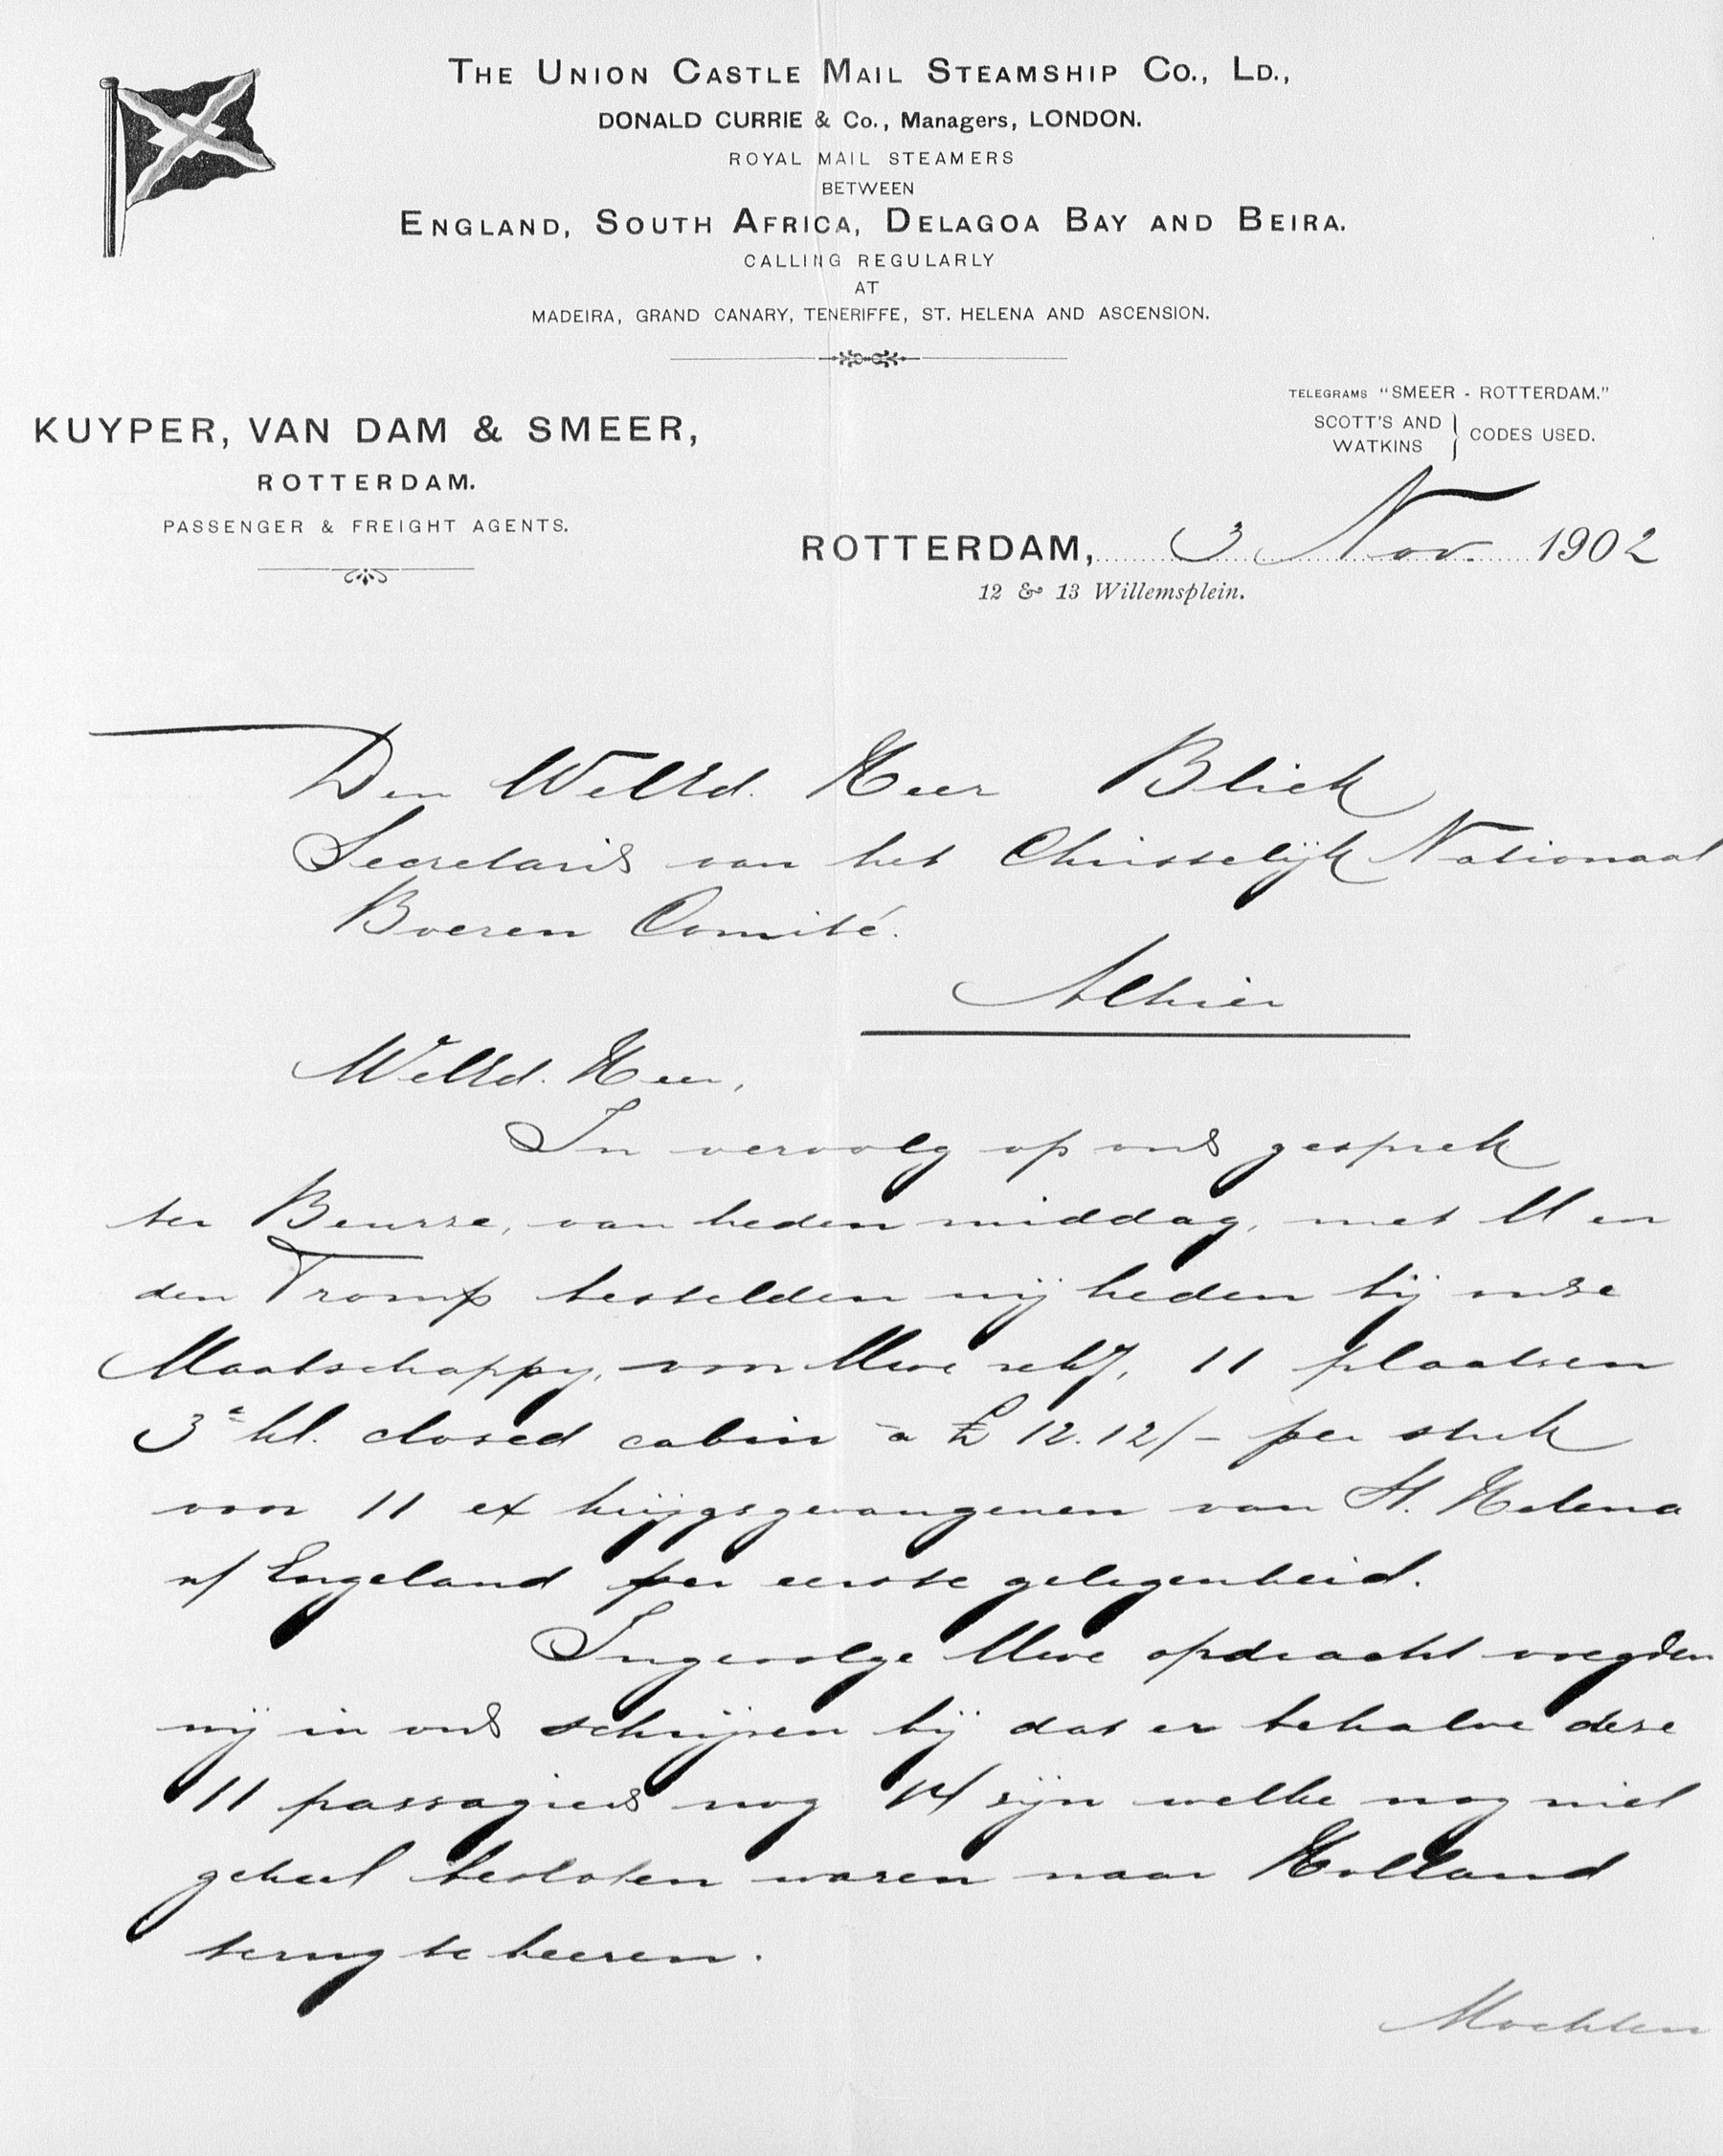 THE UNION CASTLE MAIL STEAMSHIP CO., LD.,
DONALD CURRIE & Co., Managers, LONDON.
ROYAL MAIL STEAMERS
BETWEEN
ENGLAND, SOUTH AFRICA, DELAGOA BAY AND BEIRA.
CALLING REGULARLY
AT
MADEIRA, GRAND CANARY, TENERIFFE, ST. HELENA AND ASCENSION.
TELEGRAMS "SMEER - ROTTERDAM."
SCOTT'S AND
WATKINS } CODES USED.
KUYPER, VAN DAM & SMEER,
ROTTERDAM.
PASSENGER & FREIGHT AGENTS.
ROTTERDAM, 3 Nov. 1902
12 & 13 Willemsplein.
Den WelEd. Heer Bliek
Secretaris van het Christelijk Nationaal
Boeren Comité.
Alhier
WelEd. Heer,
In vervolg op ons gesprek
ter Beurze, van heden middag, met U en
den Tromp bestelden wij heden bij onze
Maatschappy, voor Uwe rek\g, 11 plaatsen
3e kl. closed cabin a £ 12.12/- per stuk
voor 11 ex krijgsgevangenen van St. Helena
n/ Engeland per eerste gelegenheid.
Ingevolge Uwe opdracht voegden
wij in ons schrijven bij dat er behalve deze
11 passagiers nog 14 zijn welke nog niet
geheel besloten waren naar Holland
terug te keeren.
Mochten